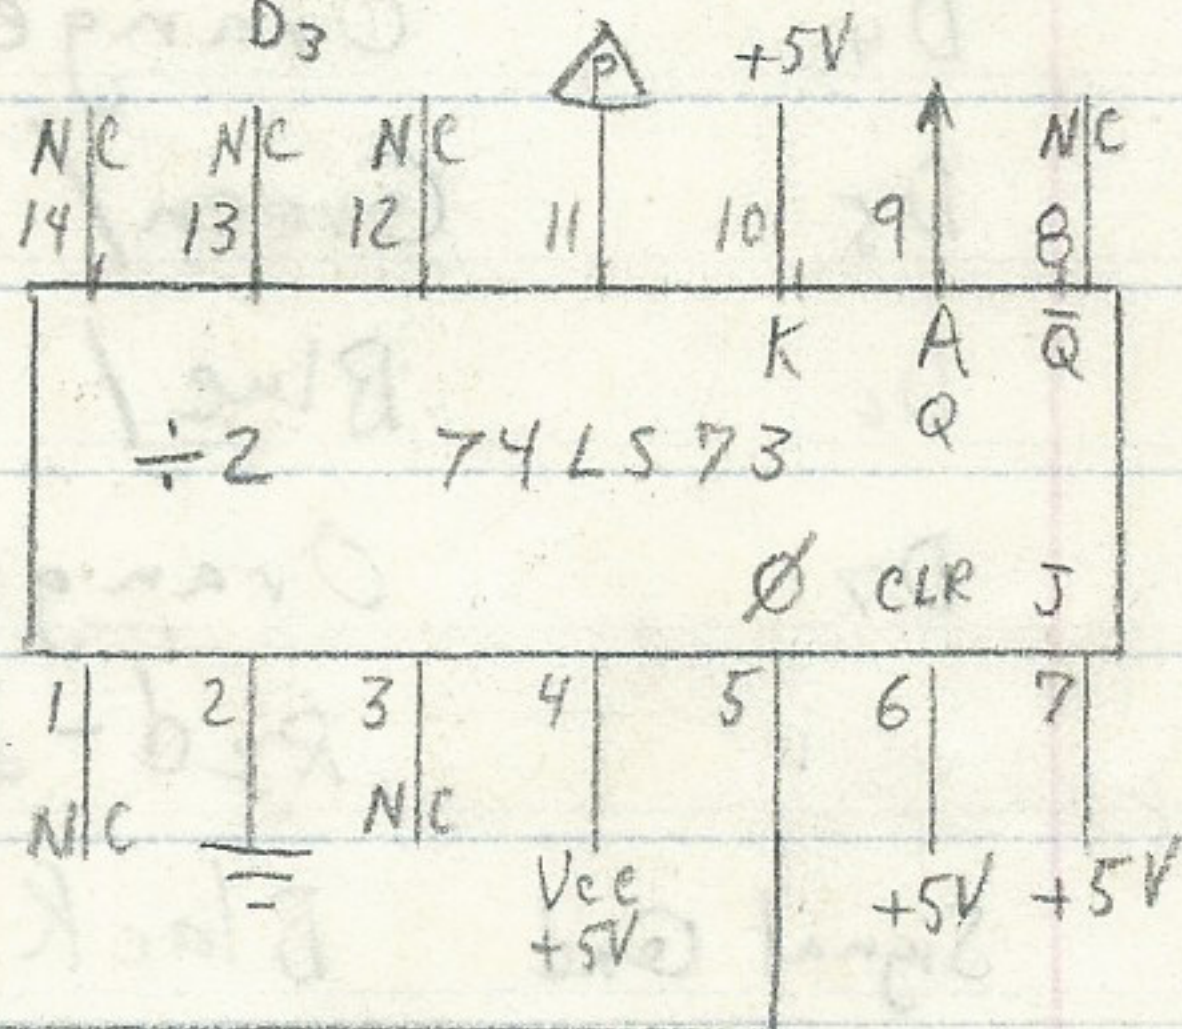 D3
P +5V
NC NC NC NC
14 13 12 11 10 9 8
K A Q̄
Q
÷2 74LS73
Ø CLR J
1 2 3 4 5 6 7
NC NC
Vcc +5V +5V
+5V